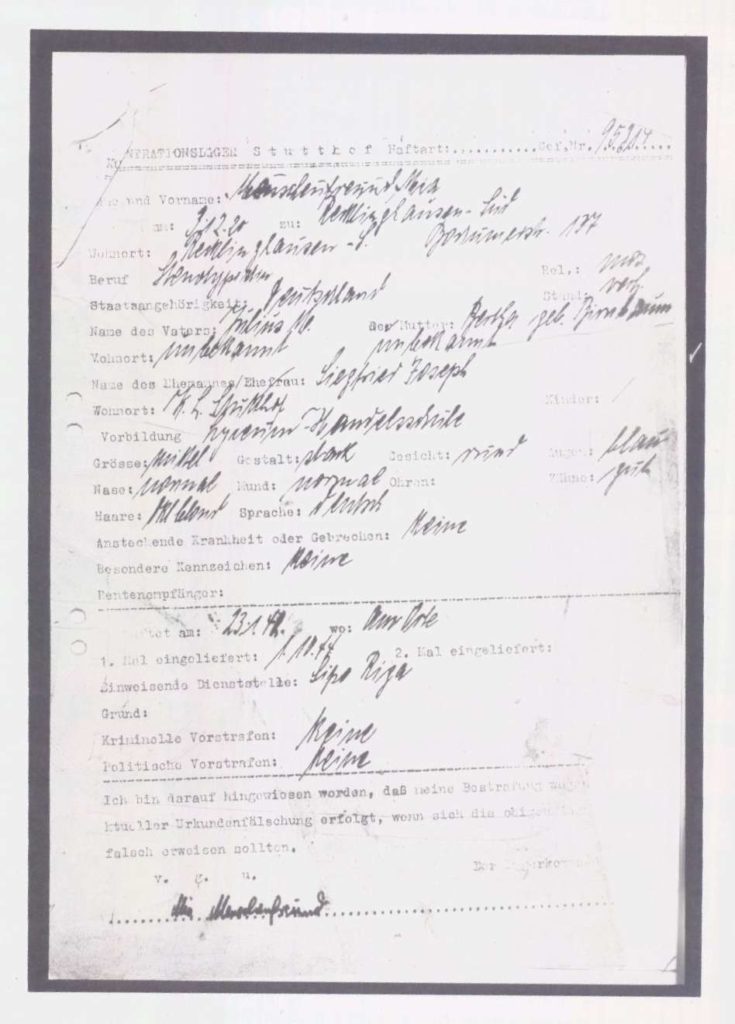 NTRATIONSLAGER Stutthof Haftart:...........Gef.Nr. 95214....
und Vorname: Menschenfreund, Mia
2-20 zu: Recklinghausen-Süd
Wohnort: Recklinghausen-S. Bochumerstr. 137
Beruf Stenotypistin Rel.: mos
Staatsangehörigkeit: Deutschland Stand: verh.
Name des Vaters: Julius M. der Mutter: Bertha geb. Birnbaum
Wohnort: unbekannt unbekannt
Name des Ehemannes/Ehefrau: Siegfried Joseph
Wohnort: K.L. Stutthof Kinder: /
Vorbildung Lyzeum-Handelsschule
Grösse: Mittel Gestalt: stark Gesicht: rund Augen: blau
Nase: normal Mund: normal Ohren: Zähne: gut
Haare: dklblond Sprache: deutsch
Ansteckende Krankheit oder Gebrechen: Keine
Besondere Kennzeichen: Keine
Rentenempfänger:
am: 23.1.42. wo: Am Orte
1. Mal eingeliefert: 1.10.44 2. Mal eingeliefert:
Einweisende Dienststelle: Sipo Riga
Grund:
Kriminelle Vorstrafen: Keine
Politische Vorstrafen: Keine
Ich bin darauf hingewiesen worden, daß meine Bestrafung wegen
ktueller Urkundenfälschung erfolgt, wenn sich die obigen
falsch erweisen sollten.
v. g. u. Der
Mia Menschenfreund